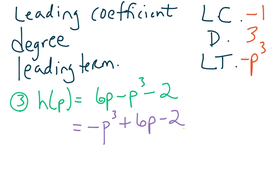 Leading coefficient
degree
leading term.
LC. -1
D. 3
LT. -p³
③ h(p) = 6p - p³ - 2
= -p³ + 6p - 2